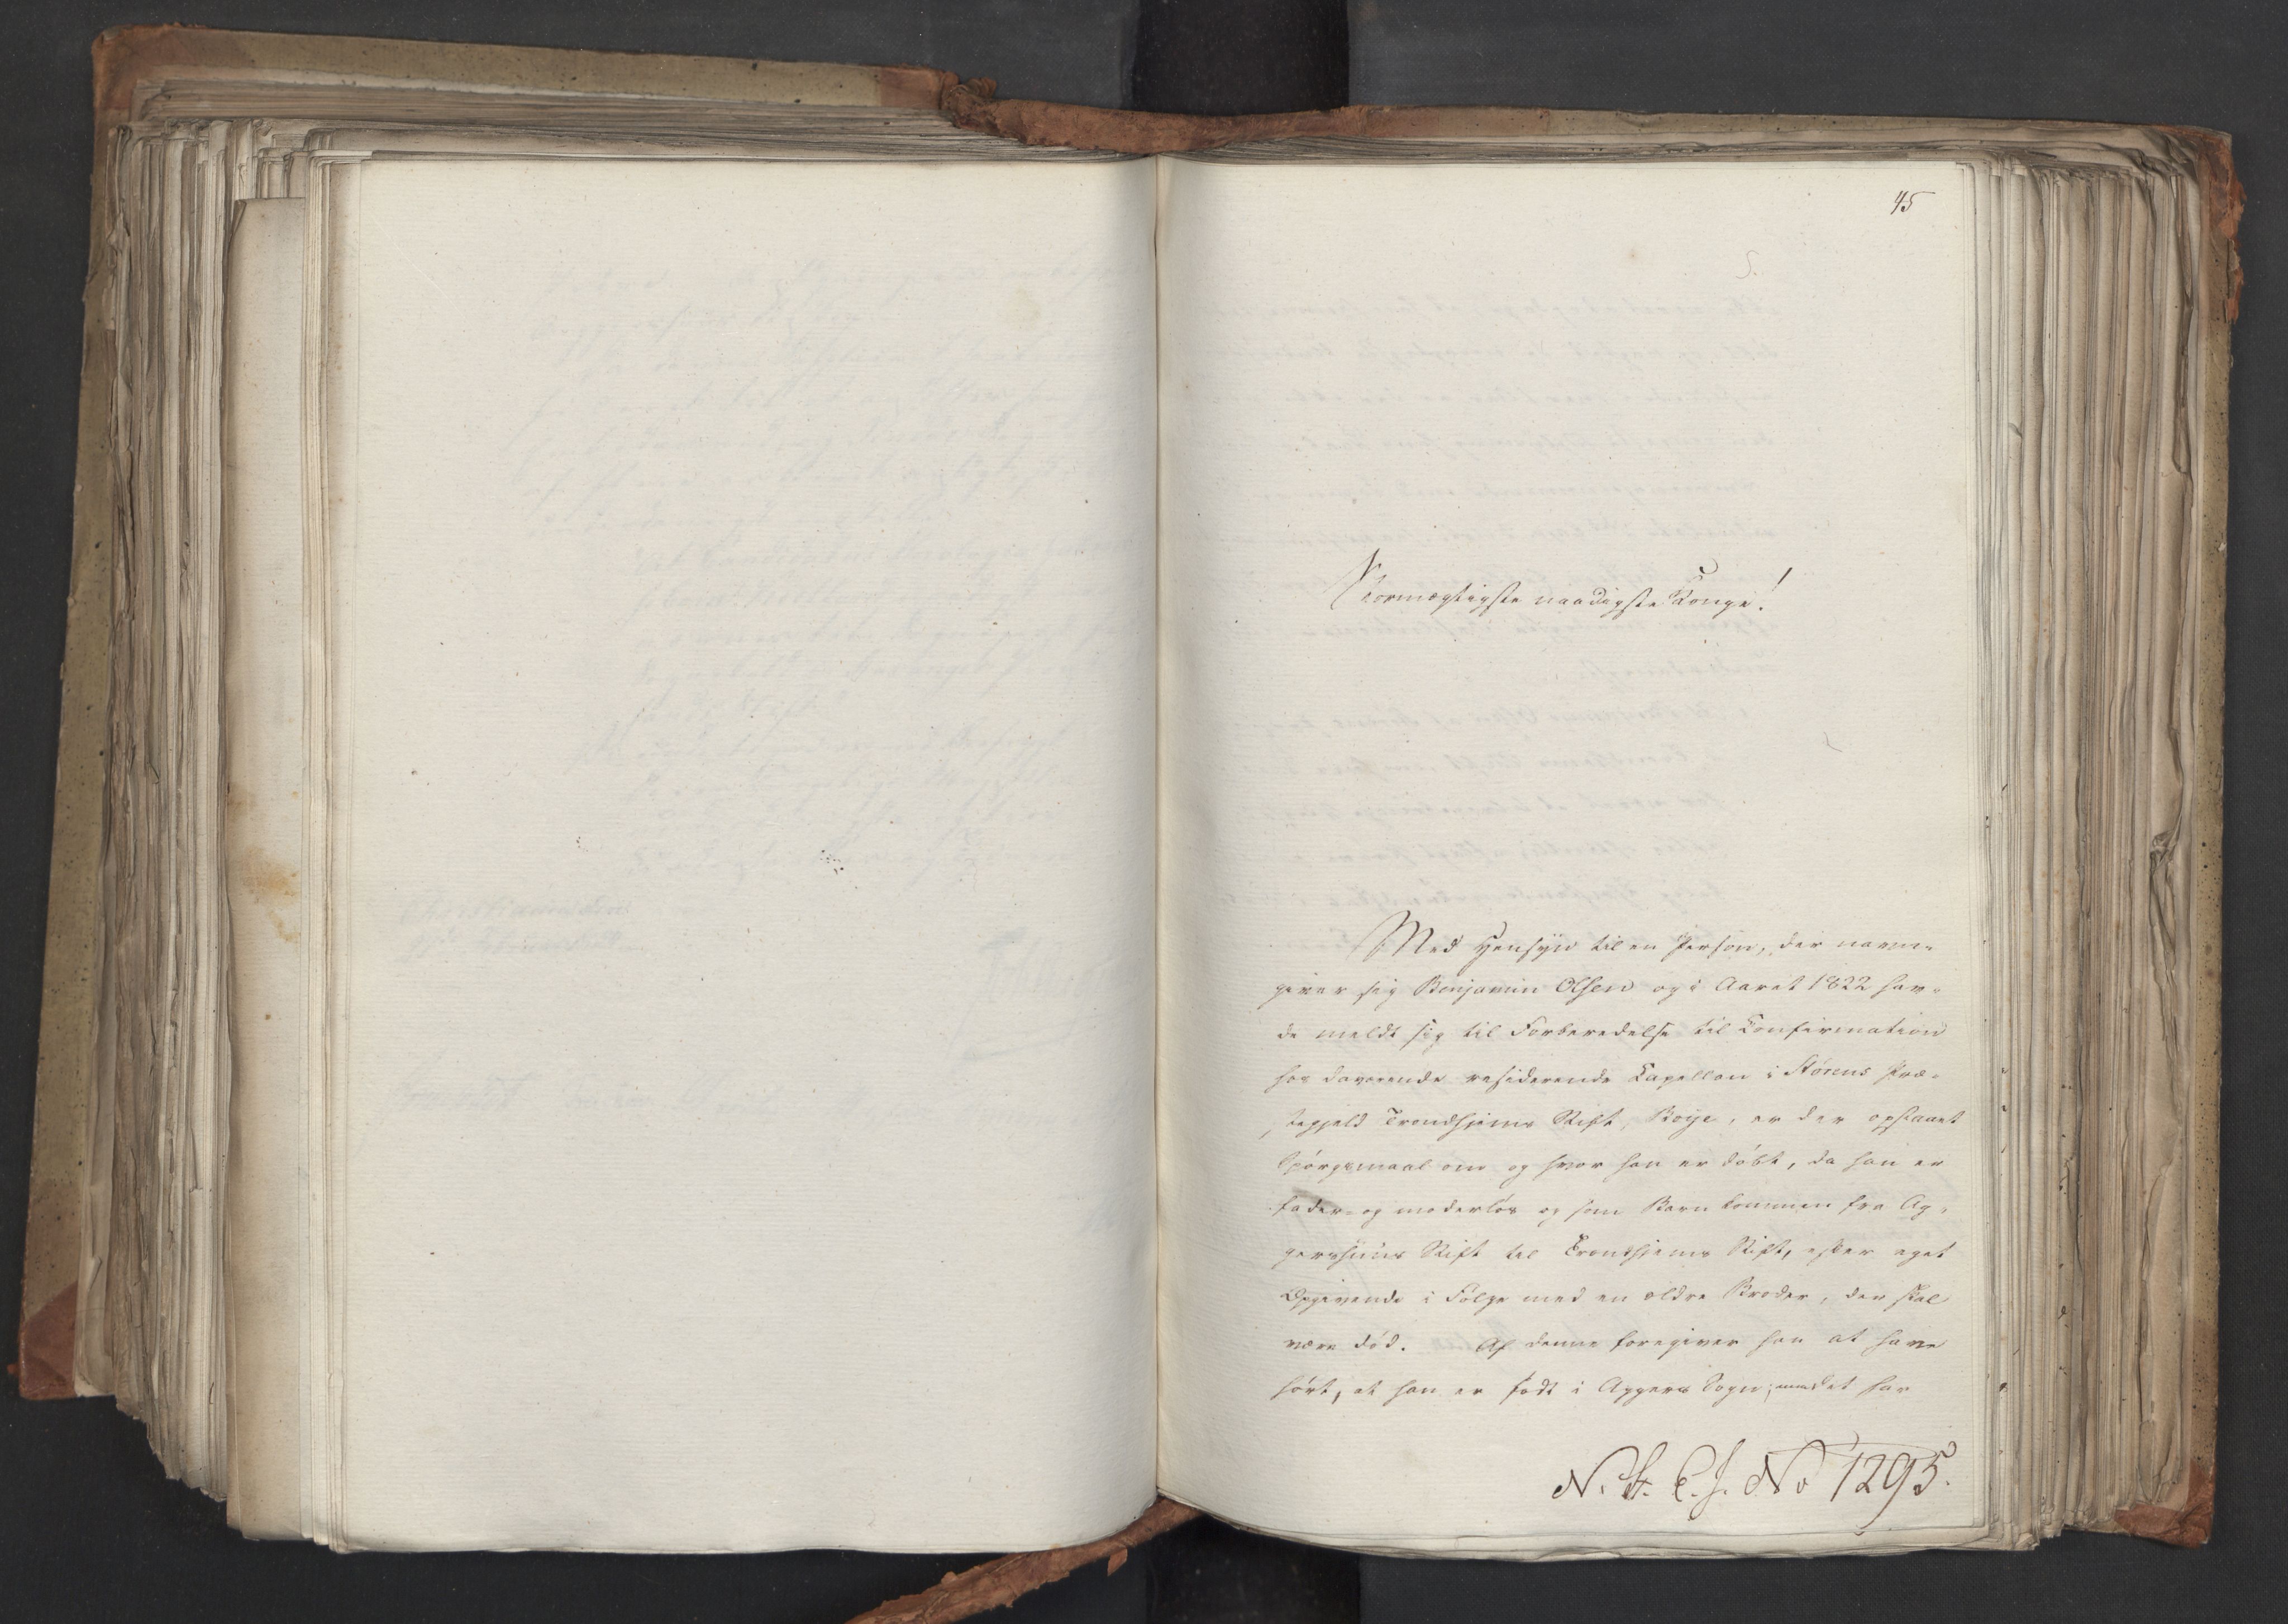 45
5.
Stormægtigste naadigste Konge!
Med Hensyn til en Person, der navn-
giver sig Benjamin Olsen og i Aaret 1822 hav-
de meldt sig til Forberedelse til Confirmation
hos daværende residerende Capellan i Störens Præ-
stegjeld Trondhjems Stift, Boije, er der opstaaet
Spörgsmaal om og hvor han er döbt, da han er
fader- og moderlös og som Barn kommen fra Ag-
gershuus Stift til Trondhjems Stift, efter eget
Opgivende i Fölge med en ældre Broder, der skal
være död. Af denne foregiver han at have
hört, at han er födt i Aggers Sogn; det har
N. St. C. J. No 1295.